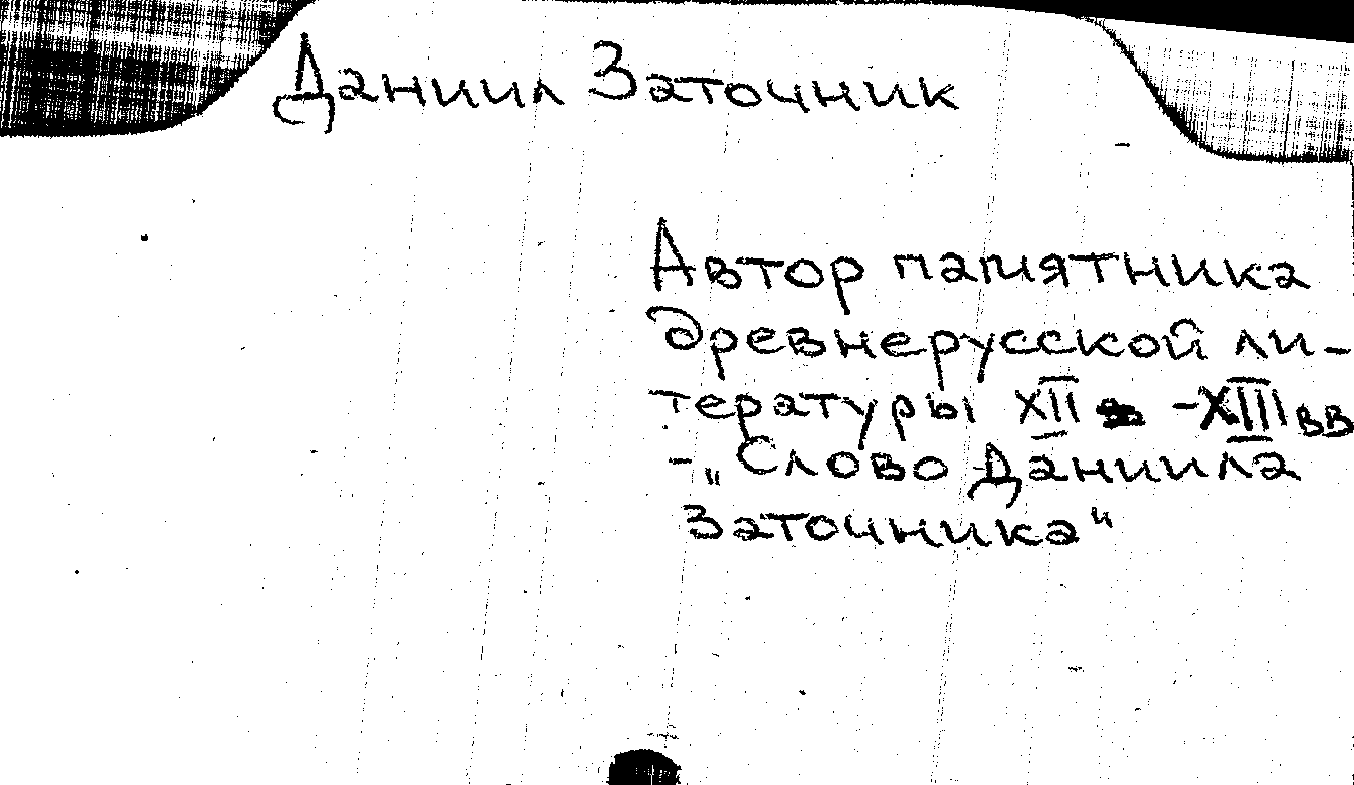 Даниил Заточник
Автор памятника
древнерусской ли-
тературы XII -XIII вв
-„Слово Даниила
Заточника"